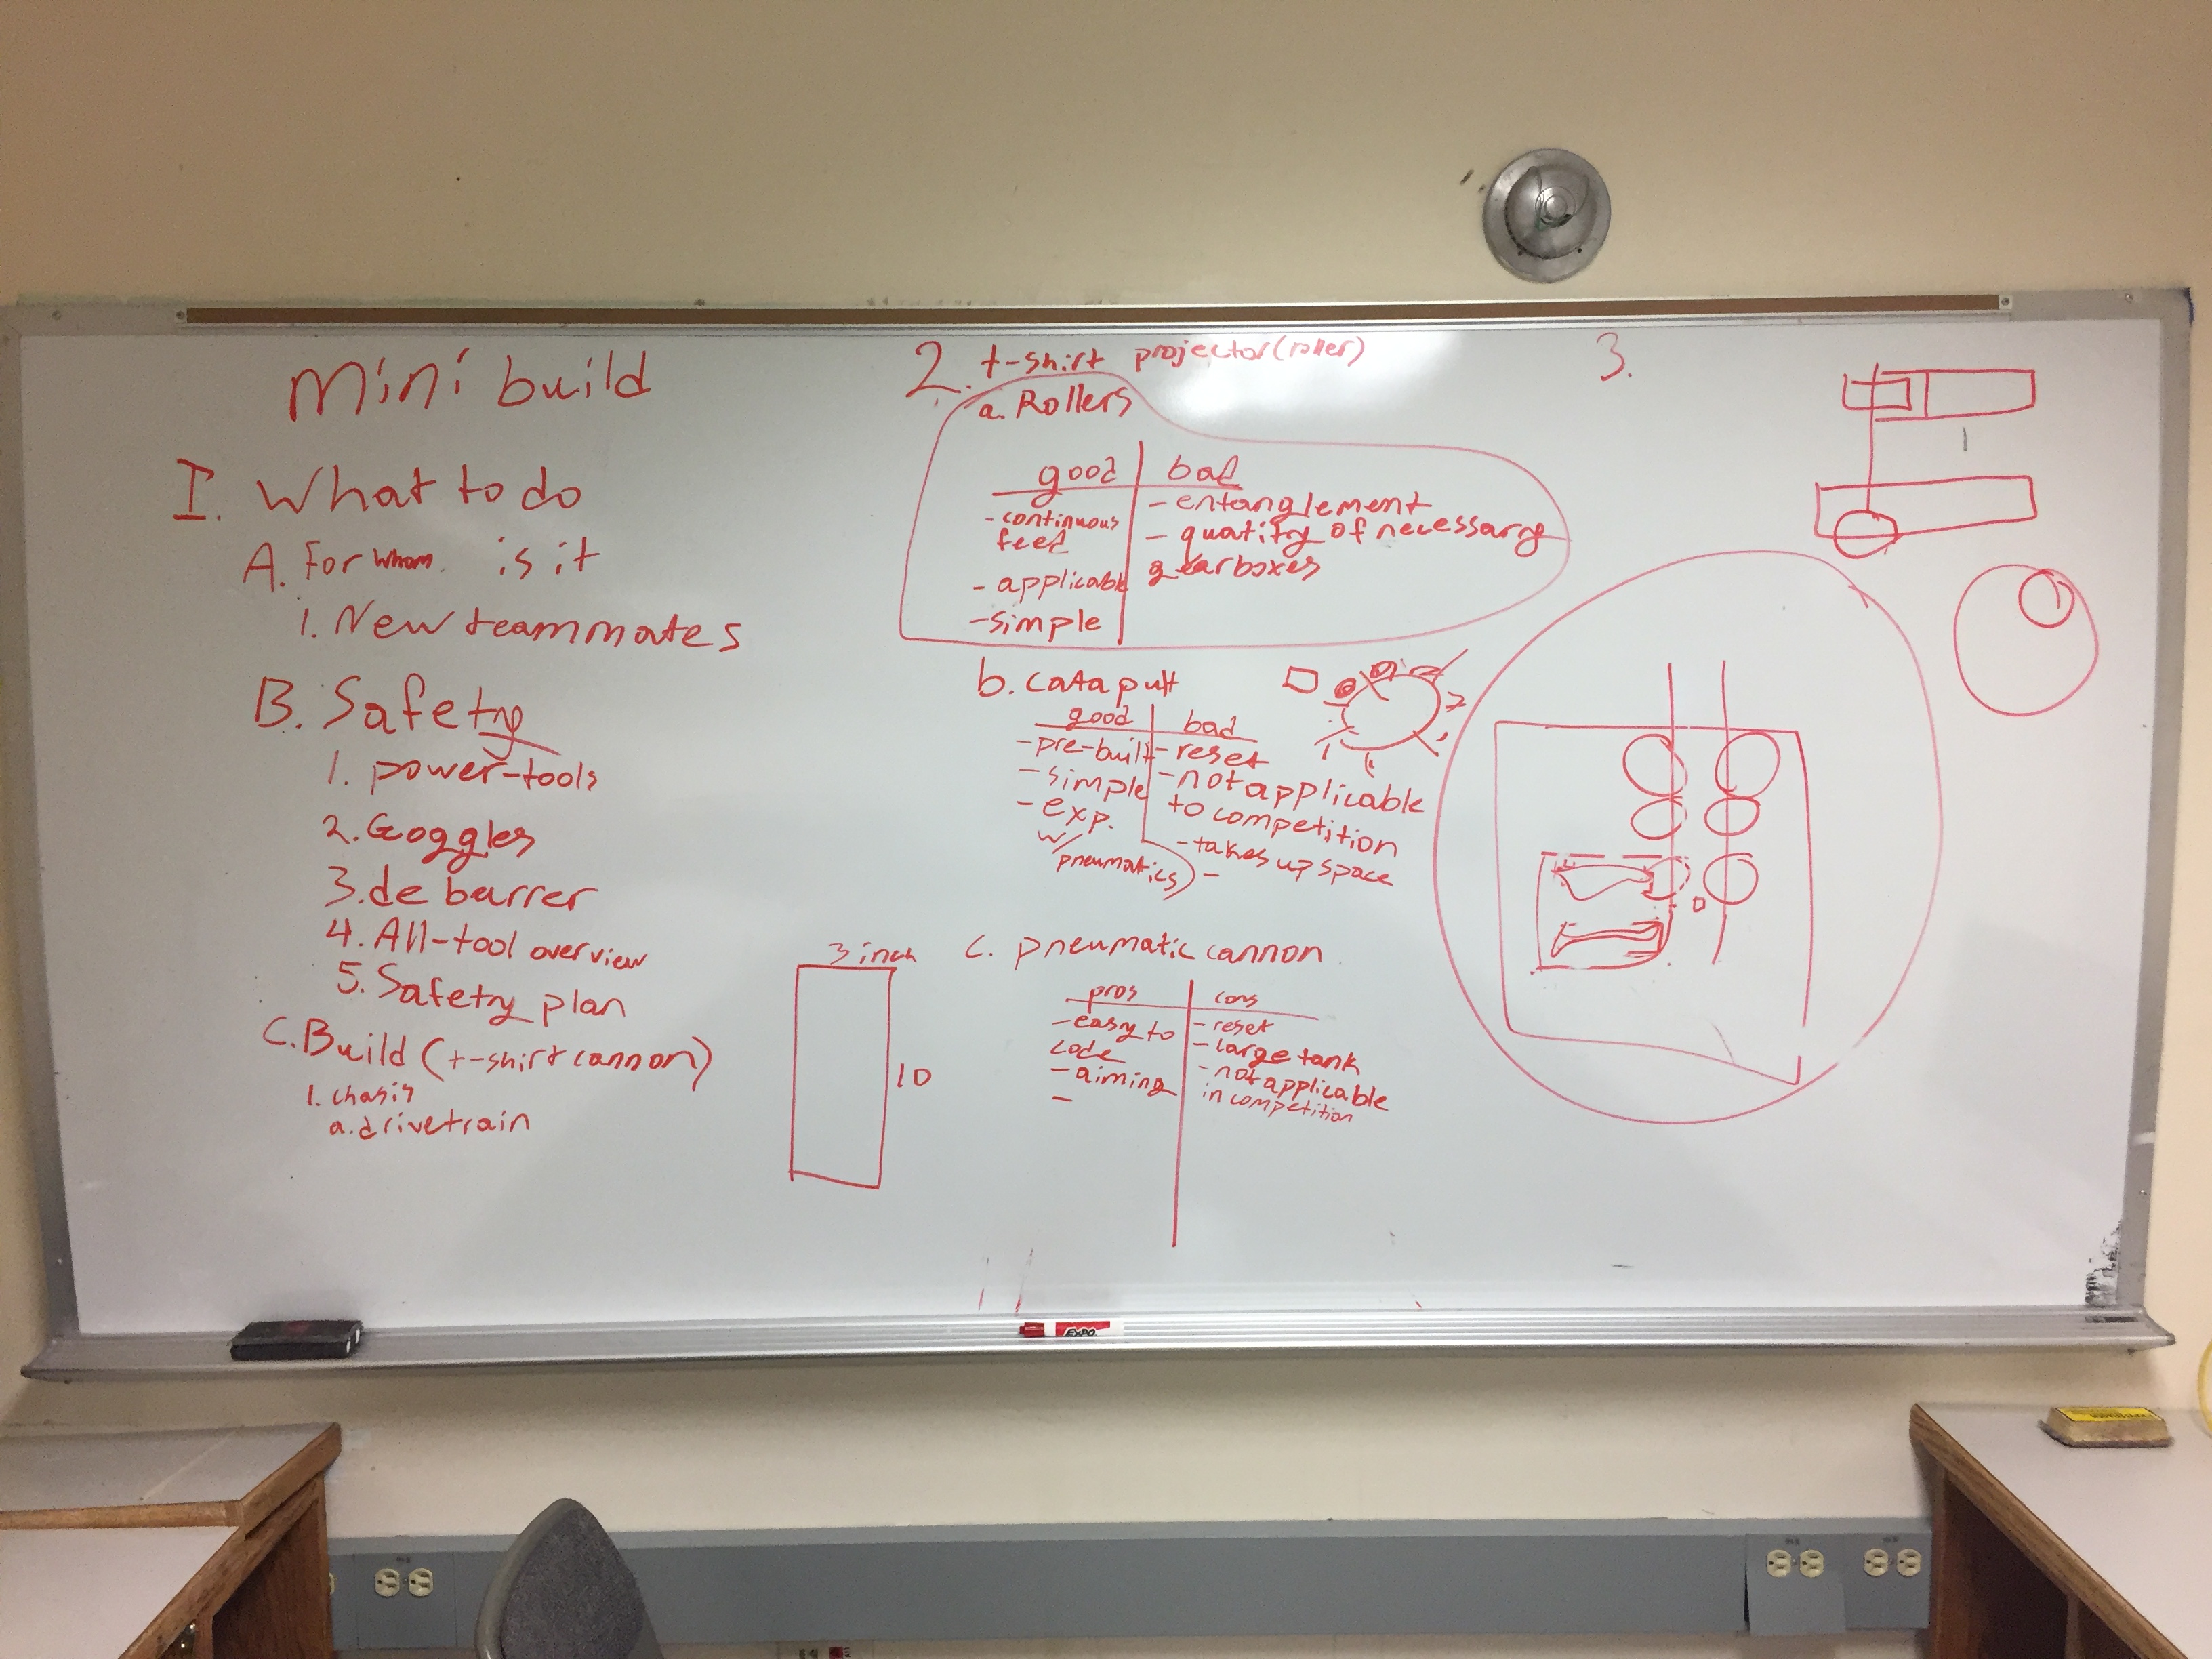 Mini build
I. What to do
A. For whom is it
1. New teammates
B. Safety
1. power-tools
2. Goggles
3. de burrer
4. All-tool overview
5. Safety plan
C. Build (t-shirt cannon)
1. chasis
a. drivetrain
3 inch
10
2. t-shirt projector (roller)
a. Rollers
good
- continuous
feed
- applicable
- simple
bad
- entanglement
- quatity of necessary
gearboxes
b. catapult
good
- pre-built
- simple
- exp.
w/
pneumatics
bad
- reset
- not applicable
to competition
- takes up space
-
c. pneumatic cannon
pros
- easy to
code
- aiming
-
cons
- reset
- large tank
- not applicable
in competition
3.
EXPO